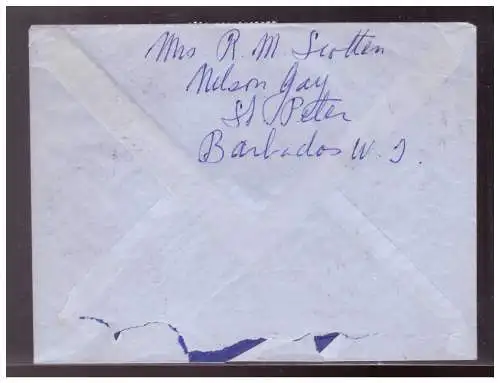 Mrs R. M. Scotten
Nelson Gay
St Peter
Barbados W. I.